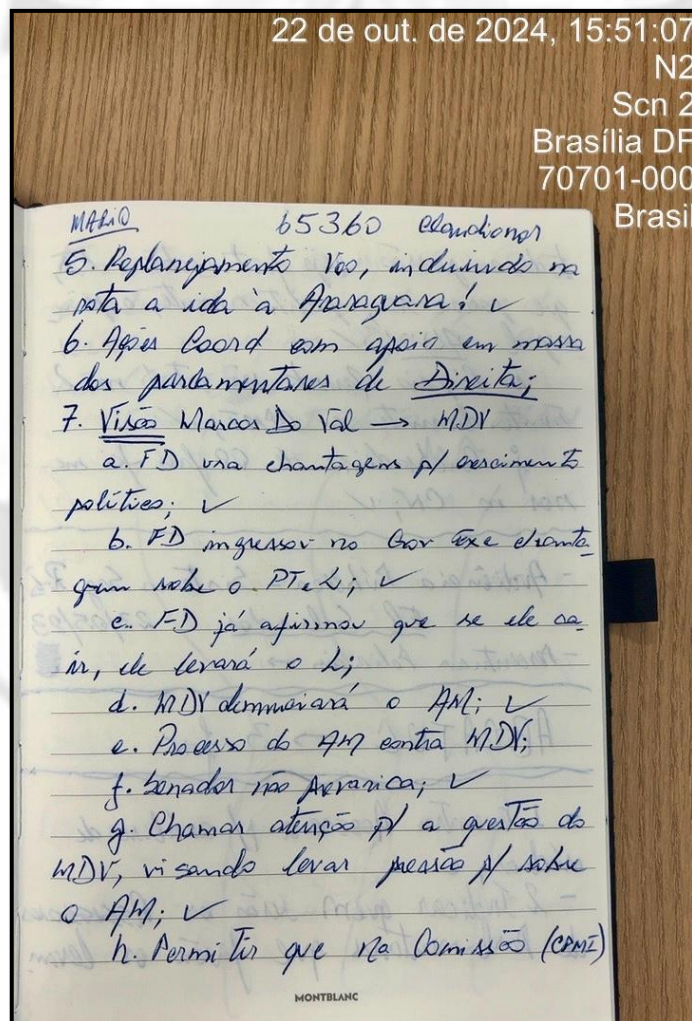 22 de out. de 2024, 15:51:07
N2
Scn 2
Brasília DF
70701-000
Brasil
MARIO 65360 Claudionor
5. Replanejamento Voo, incluindo na
rota a ida à Araraquara! ✓
6. Ações Coord com apoio em massa
dos parlamentares de Direita;
7. Visão Marcos Do Val → MDV
a. FD usa chantagens p/ crescimento
político; ✓
b. FD ingressou no Gov Fxe chanta-
gem sobre o PT e L; ✓
c. FD já afirmou que se ele ca-
ir, ele levará o L;
d. MDV denunciará o AM; ✓
e. Processo do AM contra MDV;
f. Senador não prevarica; ✓
g. Chamar atenção p/ a questão do
MDV, visando levar pressão p/ sobre
o AM; ✓
h. Permitir que na Comissão (CPMI)
MONTBLANC